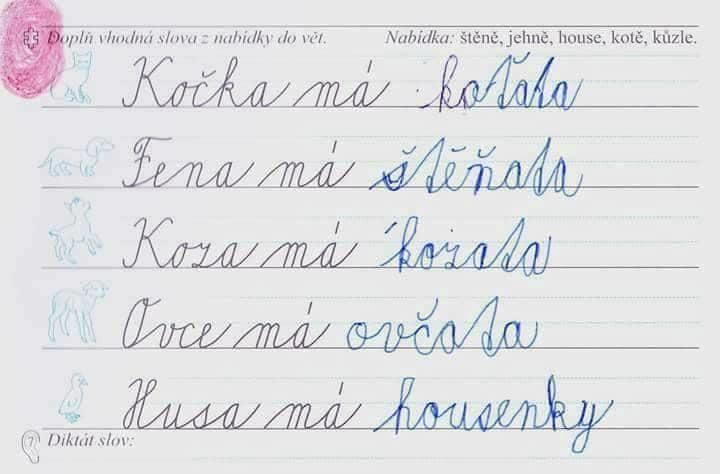 Doplň vhodná slova z nabídky do vět. Nabídka: štěně, jehně, house, kotě, kůzle.
Kočka má koťata
Fena má štěňata
Koza má kozata
Ovce má ovčata
Husa má housenky
7 Diktát slov: